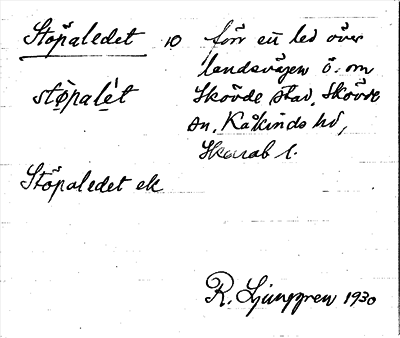 Stöpaledet 10 förr en led över
landsvägen ö. om
stø̀palèt Skövde stad, Skövde
sn, Kåkinds hd,
Skarab l.
Stöpaledet ek
R. Ljunggren 1930